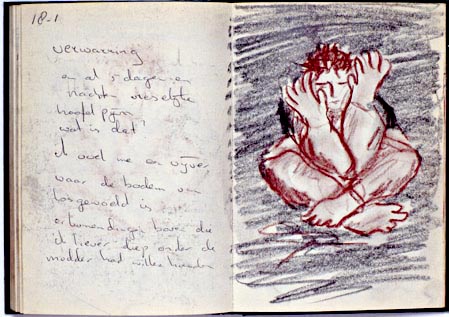 18-1
verwarring
en al 5 dagen en
nachten vreselijke
hoofdpijn
wat is dat
ik voel me een vijver
waar de bodem van
losgewoeld is
er komen dingen boven die
ik liever diep onder de
modder had willen houden